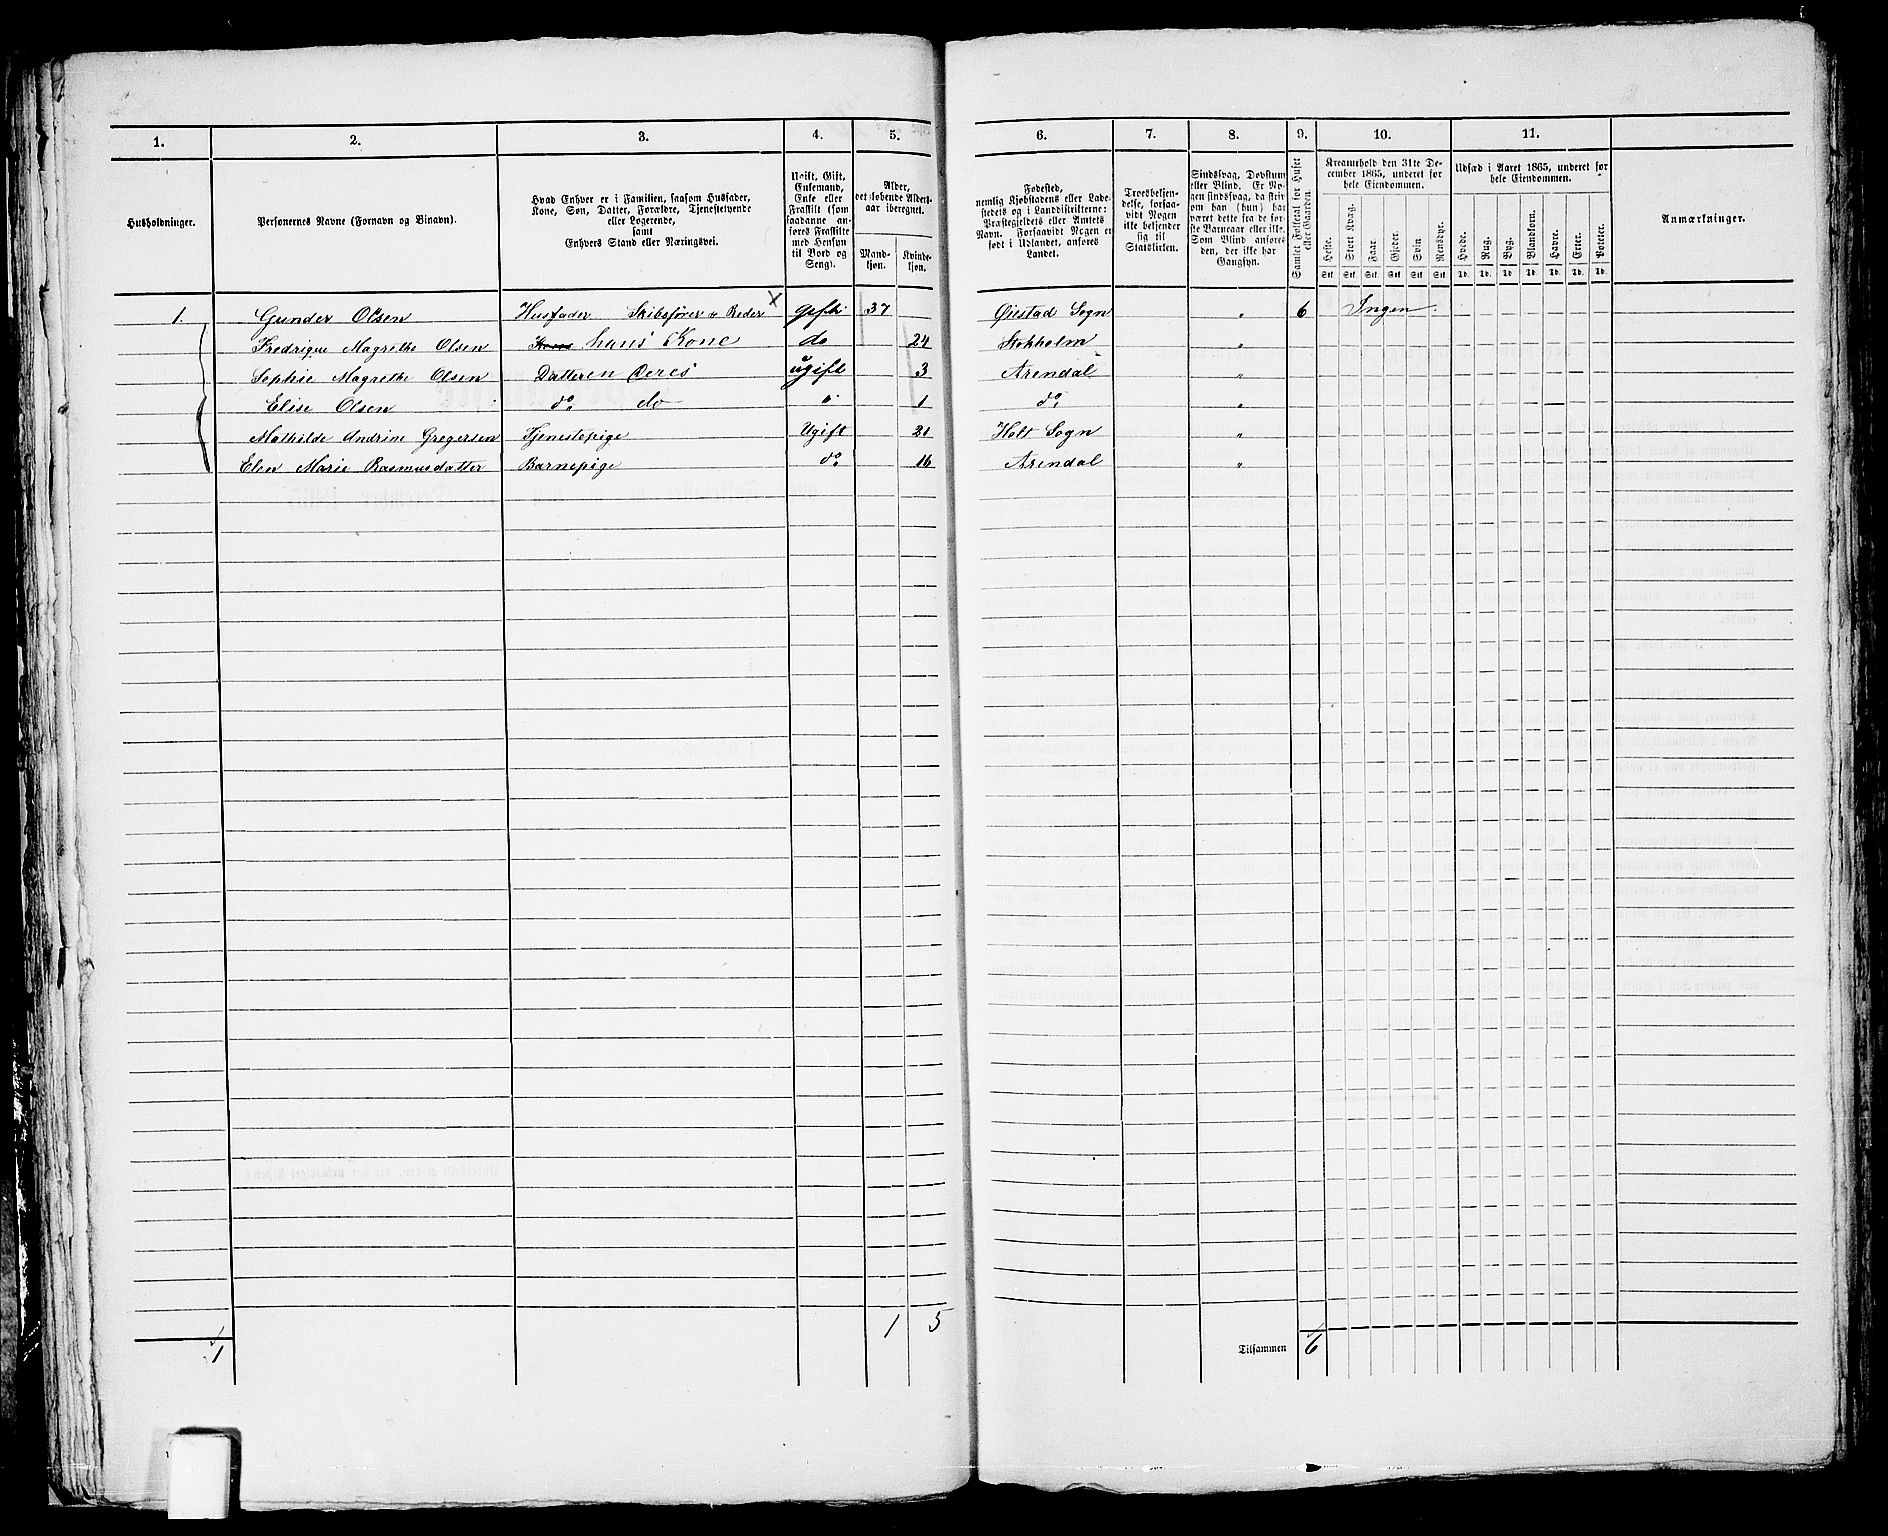 1. 2. 3. 4. 5. 6. 7. 8. 9. 10. 11.
Husholdninger.
Personernes Navne (Fornavn og Binavn).
Hvad Enhver er i Familien, saasom Husfader,
Kone, Søn, Datter, Forældre, Tjenestetyende
eller Logerende,
samt
Enhvers Stand eller Næringsvei.
Ugift, Gift,
Enkemand,
Enke eller
Fraskilt (som
saadanne an-
føres Fraskilte
med Hensyn
til Bord og
Seng).
Alder,
det løbende Alders-
aar iberegnet.
Mand-
kjøn.
Kvinde-
kjøn.
Fødested,
nemlig Kjøbstadens eller Lade-
stedets og i Landdistrikterne:
Præstegjeldets eller Amtets
Navn. Forsaavidt Nogen er
født i Udlandet, anføres
Landet.
Troesbekjen-
delse, forsaa-
vidt Nogen
ikke bekjender
sig til
Statskirken.
Sindssvag, Døvstum
eller Blind. Er No-
gen sindssvag, da skri-
ves om han (hun) har
været dette fra de før-
ste Barneaar eller ikke.
Som Blind anføres
den, der ikke har
Gangsyn.
Samlet Folketal for Huset
eller Gaarden.
Kreaturhold den 31te De-
cember 1865, underet for
hele Eiendommen.
Heste. Stort Kvæg. Faar. Gjeder. Svin. Rensdyr.
Stk. Stk. Stk. Stk. Stk. Stk.
Udsæd i Aaret 1865, underet for
hele Eiendommen.
Hvede. Rug. Byg. Blandkorn. Havre. Erter. Poteter.
Td. Td. Td. Td. Td. Td. Td.
Anmærkninger.
1. Gunder Olsen Husfader Skibsfører & Reder X Gift 37 Øiestad Sogn " 6 Ingen
Fredrique Magrethe Olsen Kone hans Kone do 24 Stokholm "
Sophie Magrethe Olsen Datteren Deres ugift 3 Arendal "
Elise Olsen do. do " 1 do. "
Mathilde Andrine Gregersen Tjenestepige Ugift 21 Holt Sogn "
Elen Marie Rasmusdatter Barnepige do. 16 Arendal "
1 1 5 Tilsammen 6